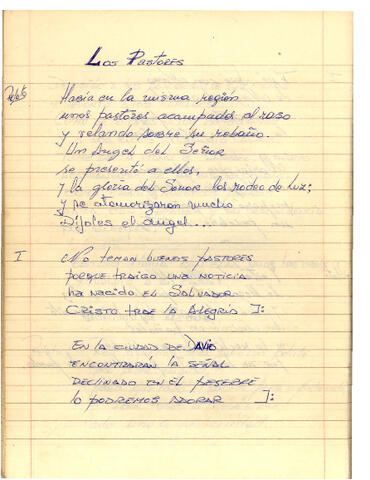 Los Pastores
Relato
Había en la misma región
unos pastores acampados al raso
y velando sobre su rebaño.
Un Angel del Señor
se presentó a ellos,
y la gloria del Señor los rodeo de Luz;
y se atemorizaron mucho
Díjoles el angel...
I
No teman buenos pastores
porque traigo una noticia
ha nacido el Salvador
Cristo trae la Alegría ]:
En la ciudad de David
encontrarán la señal
declinado en el pesebre
lo podremos adorar ]: